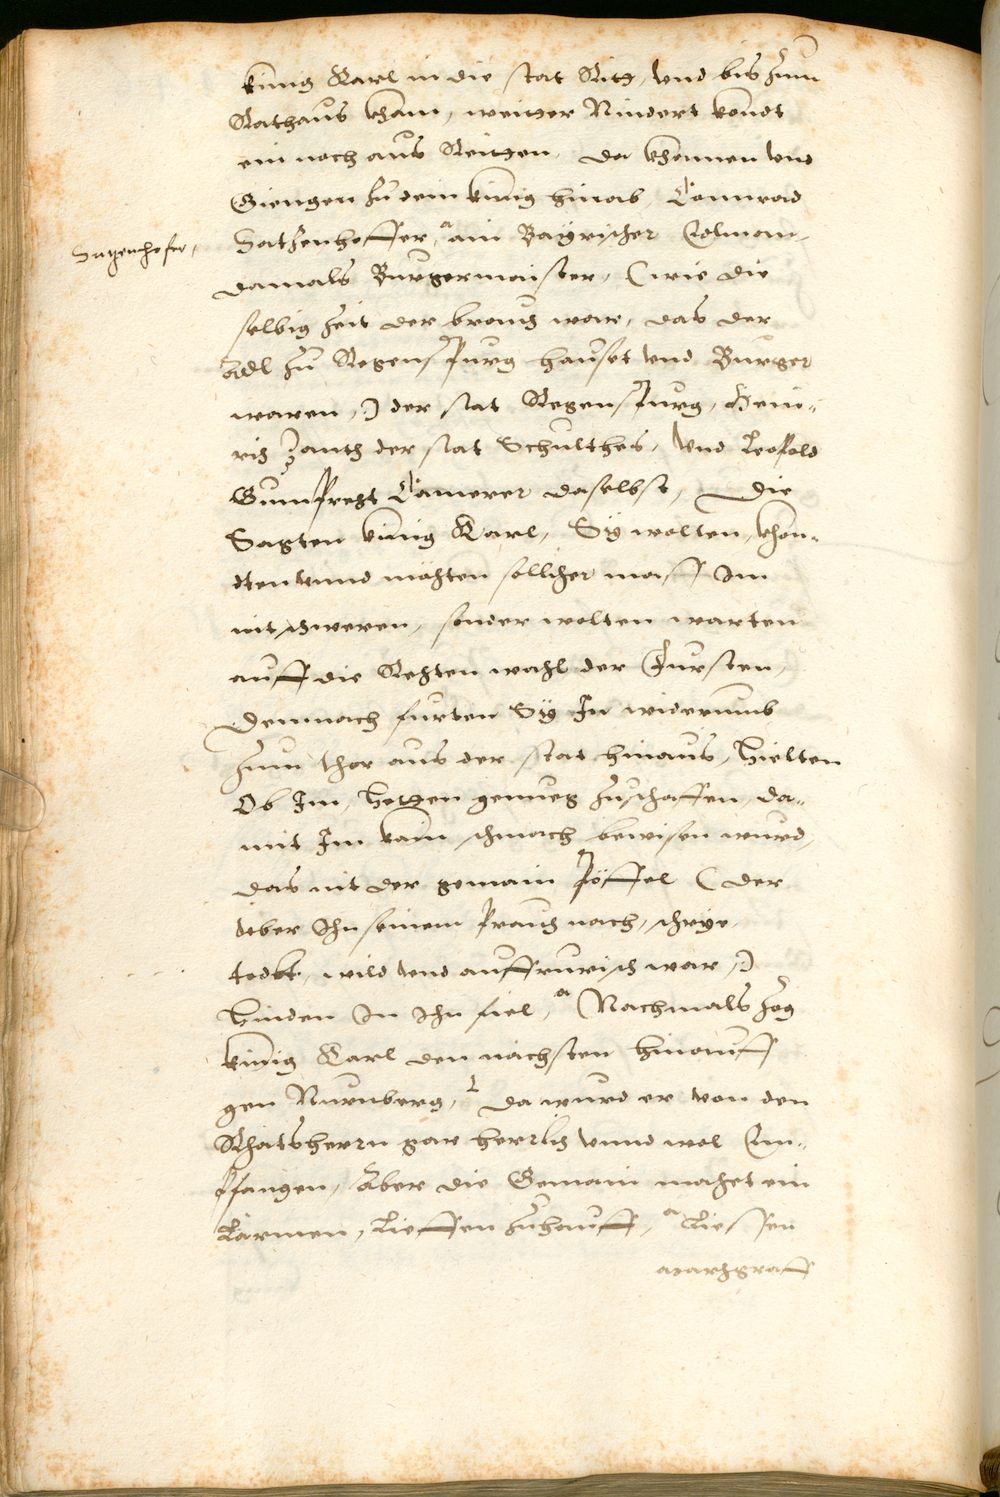 künig Karl in die stat Ritt, vnd bis zum
Rathaus kham, weitter Nindert kondt
ein noch aus Reitten. Da khomen vnd
Giengen zu dem künig hinab, Connrad
Satzenhoffer, ain Bayrischer Edlman,
Satzenhofer,
damals Burgermaister, (wie die
selbig Zeit der brauch war, das der
Adl zu Regenspurg hauset vnd Burger
waren,) der stat Regenspurg, Hein-
rich Zantt der stat Schulthes, Vnd Leopold
Gumprecht Camerer daselbst, Die
Sagten künig Karl, Sy wolten, khön-
dten vnnd möchten sollicher mass Im
nit schweren, sonder wolten warten
auff die Rechten wahl der Fürsten,
Demnach furten Sy In widerumb
zum thor aus der stat hinaus, Hielten
Ob Im, Hetten genueg zuschaffen, da-
mit Im kain schmach bewisen wurd,
das nit der gemain Pöffel (der
vber Ihn seinem prauch nach, schrye,
tobt, wild vnd auffruerisch war,)
Hinden In Ihn fiel, Nachmals zog
künig Carl den nächsten hinauff
gen Nurnberg, Da wurd er von den
Rhatsherrn gar herrlich vnnd wol Em-
pfangen, Aber die Gemain machet ein
Lärmen, Lieffen zuhauff, Liessen
Marchgraff